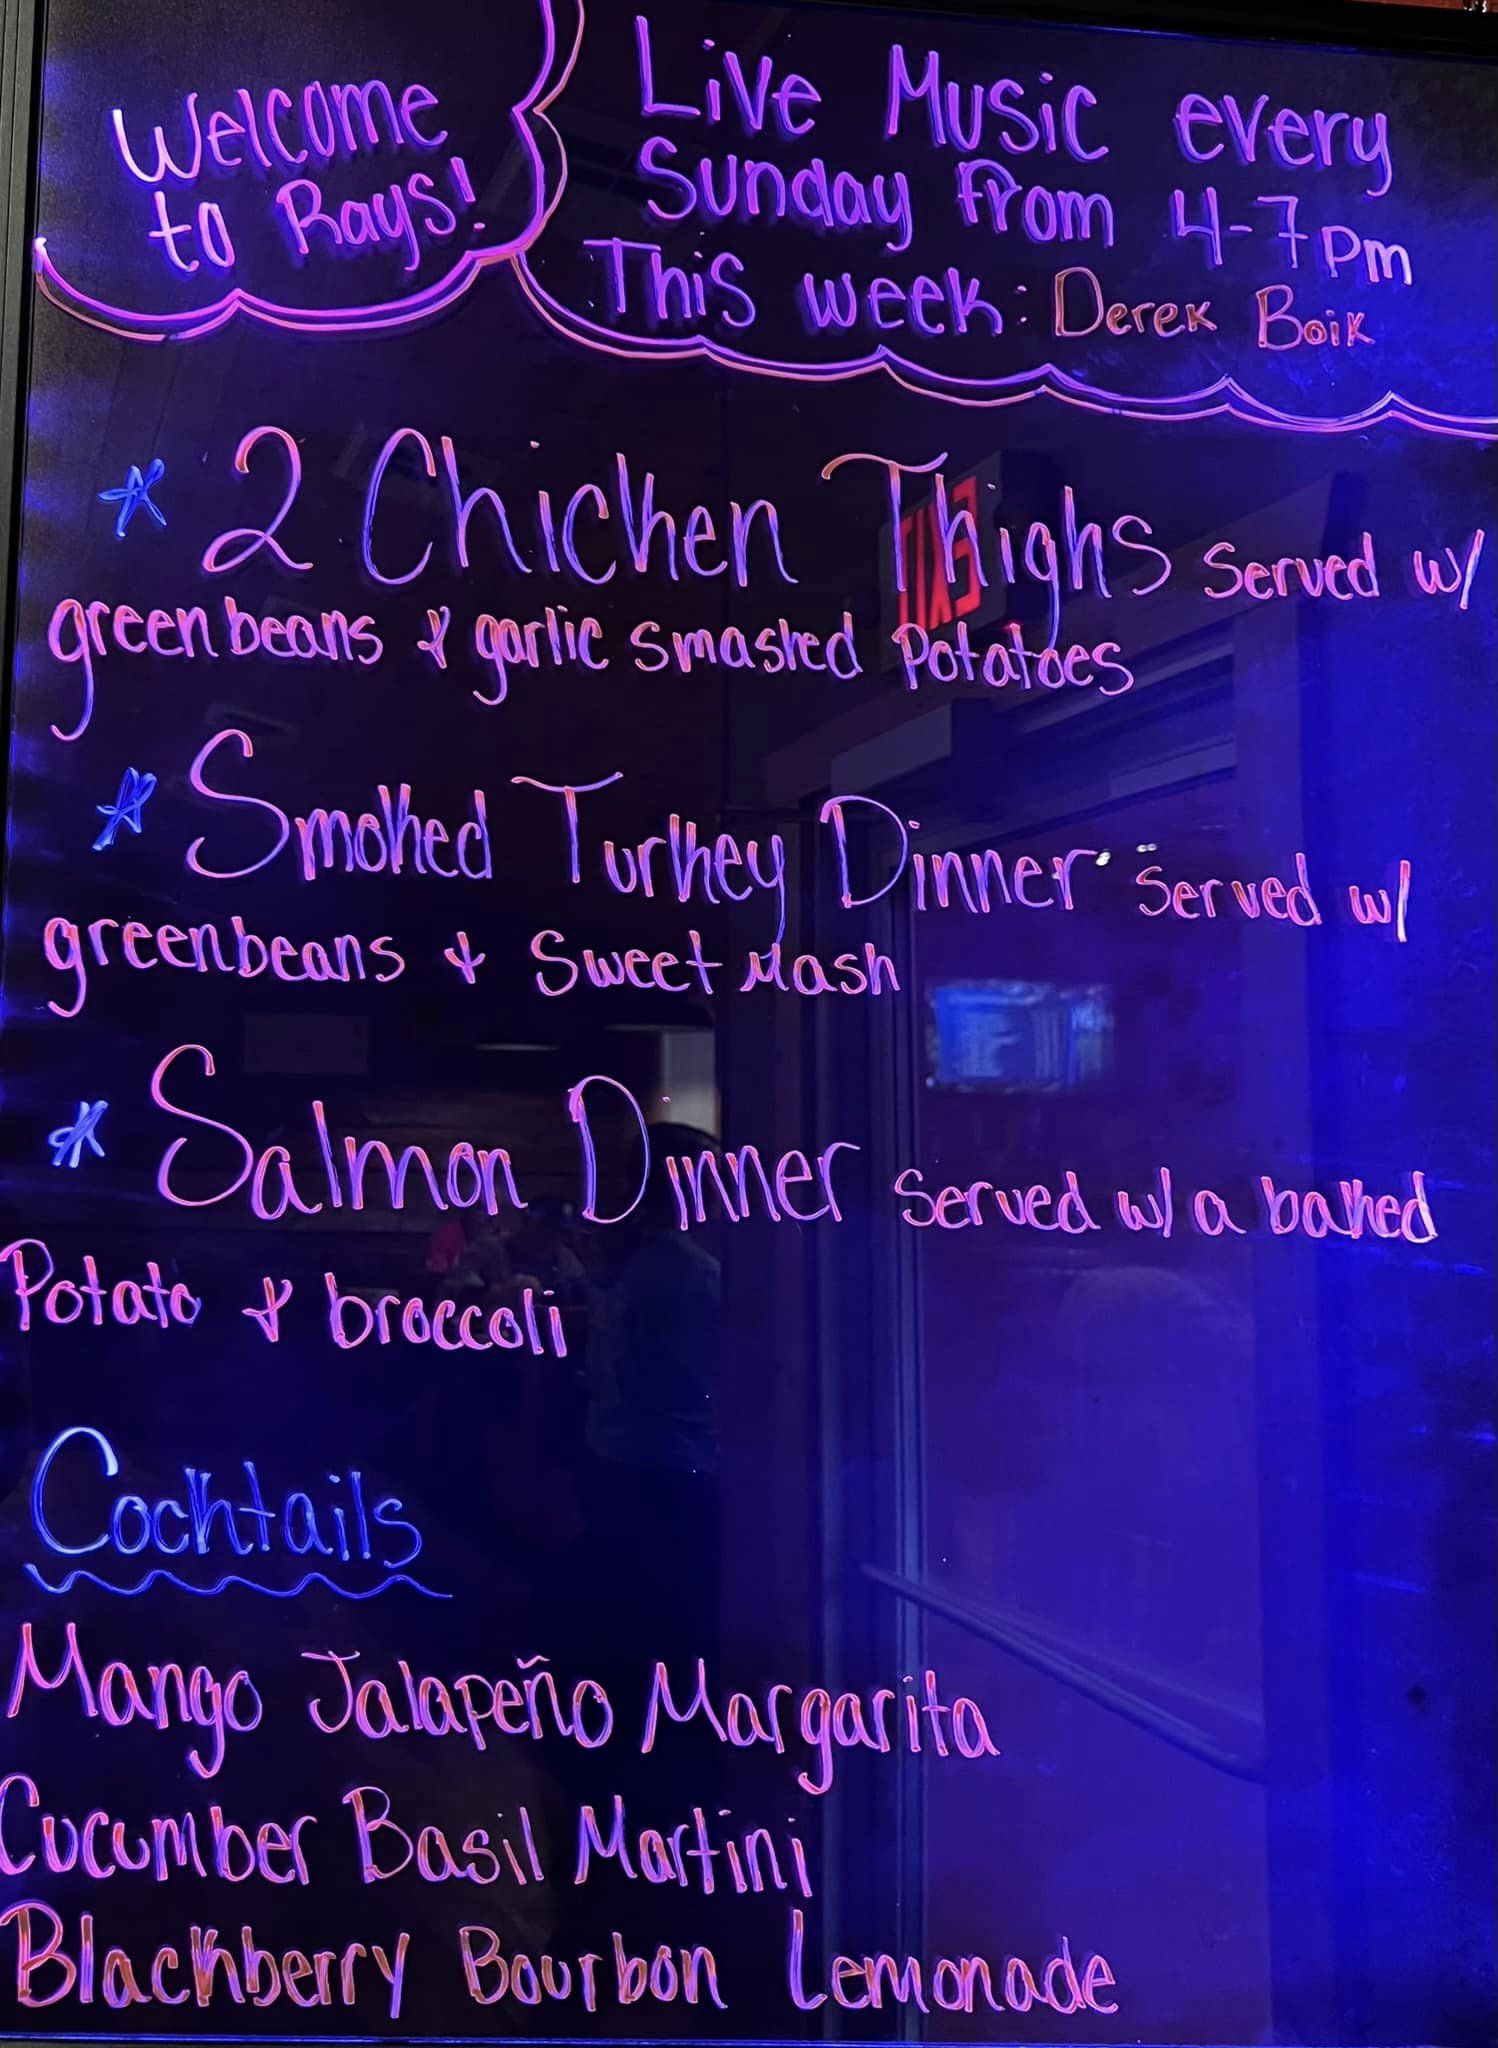 Welcome
to Rays!
Live Music every
Sunday from 4-7pm
This week: Derek Boik
* 2 Chicken Thighs served w/
greenbeans & garlic smashed Potatoes
* Smoked Turkey Dinner served w/
greenbeans & Sweet Mash
* Salmon Dinner served w/ a baked
Potato & broccoli
Cocktails
Mango Jalapeño Margarita
Cucumber Basil Martini
Blackberry Bourbon Lemonade
EXIT